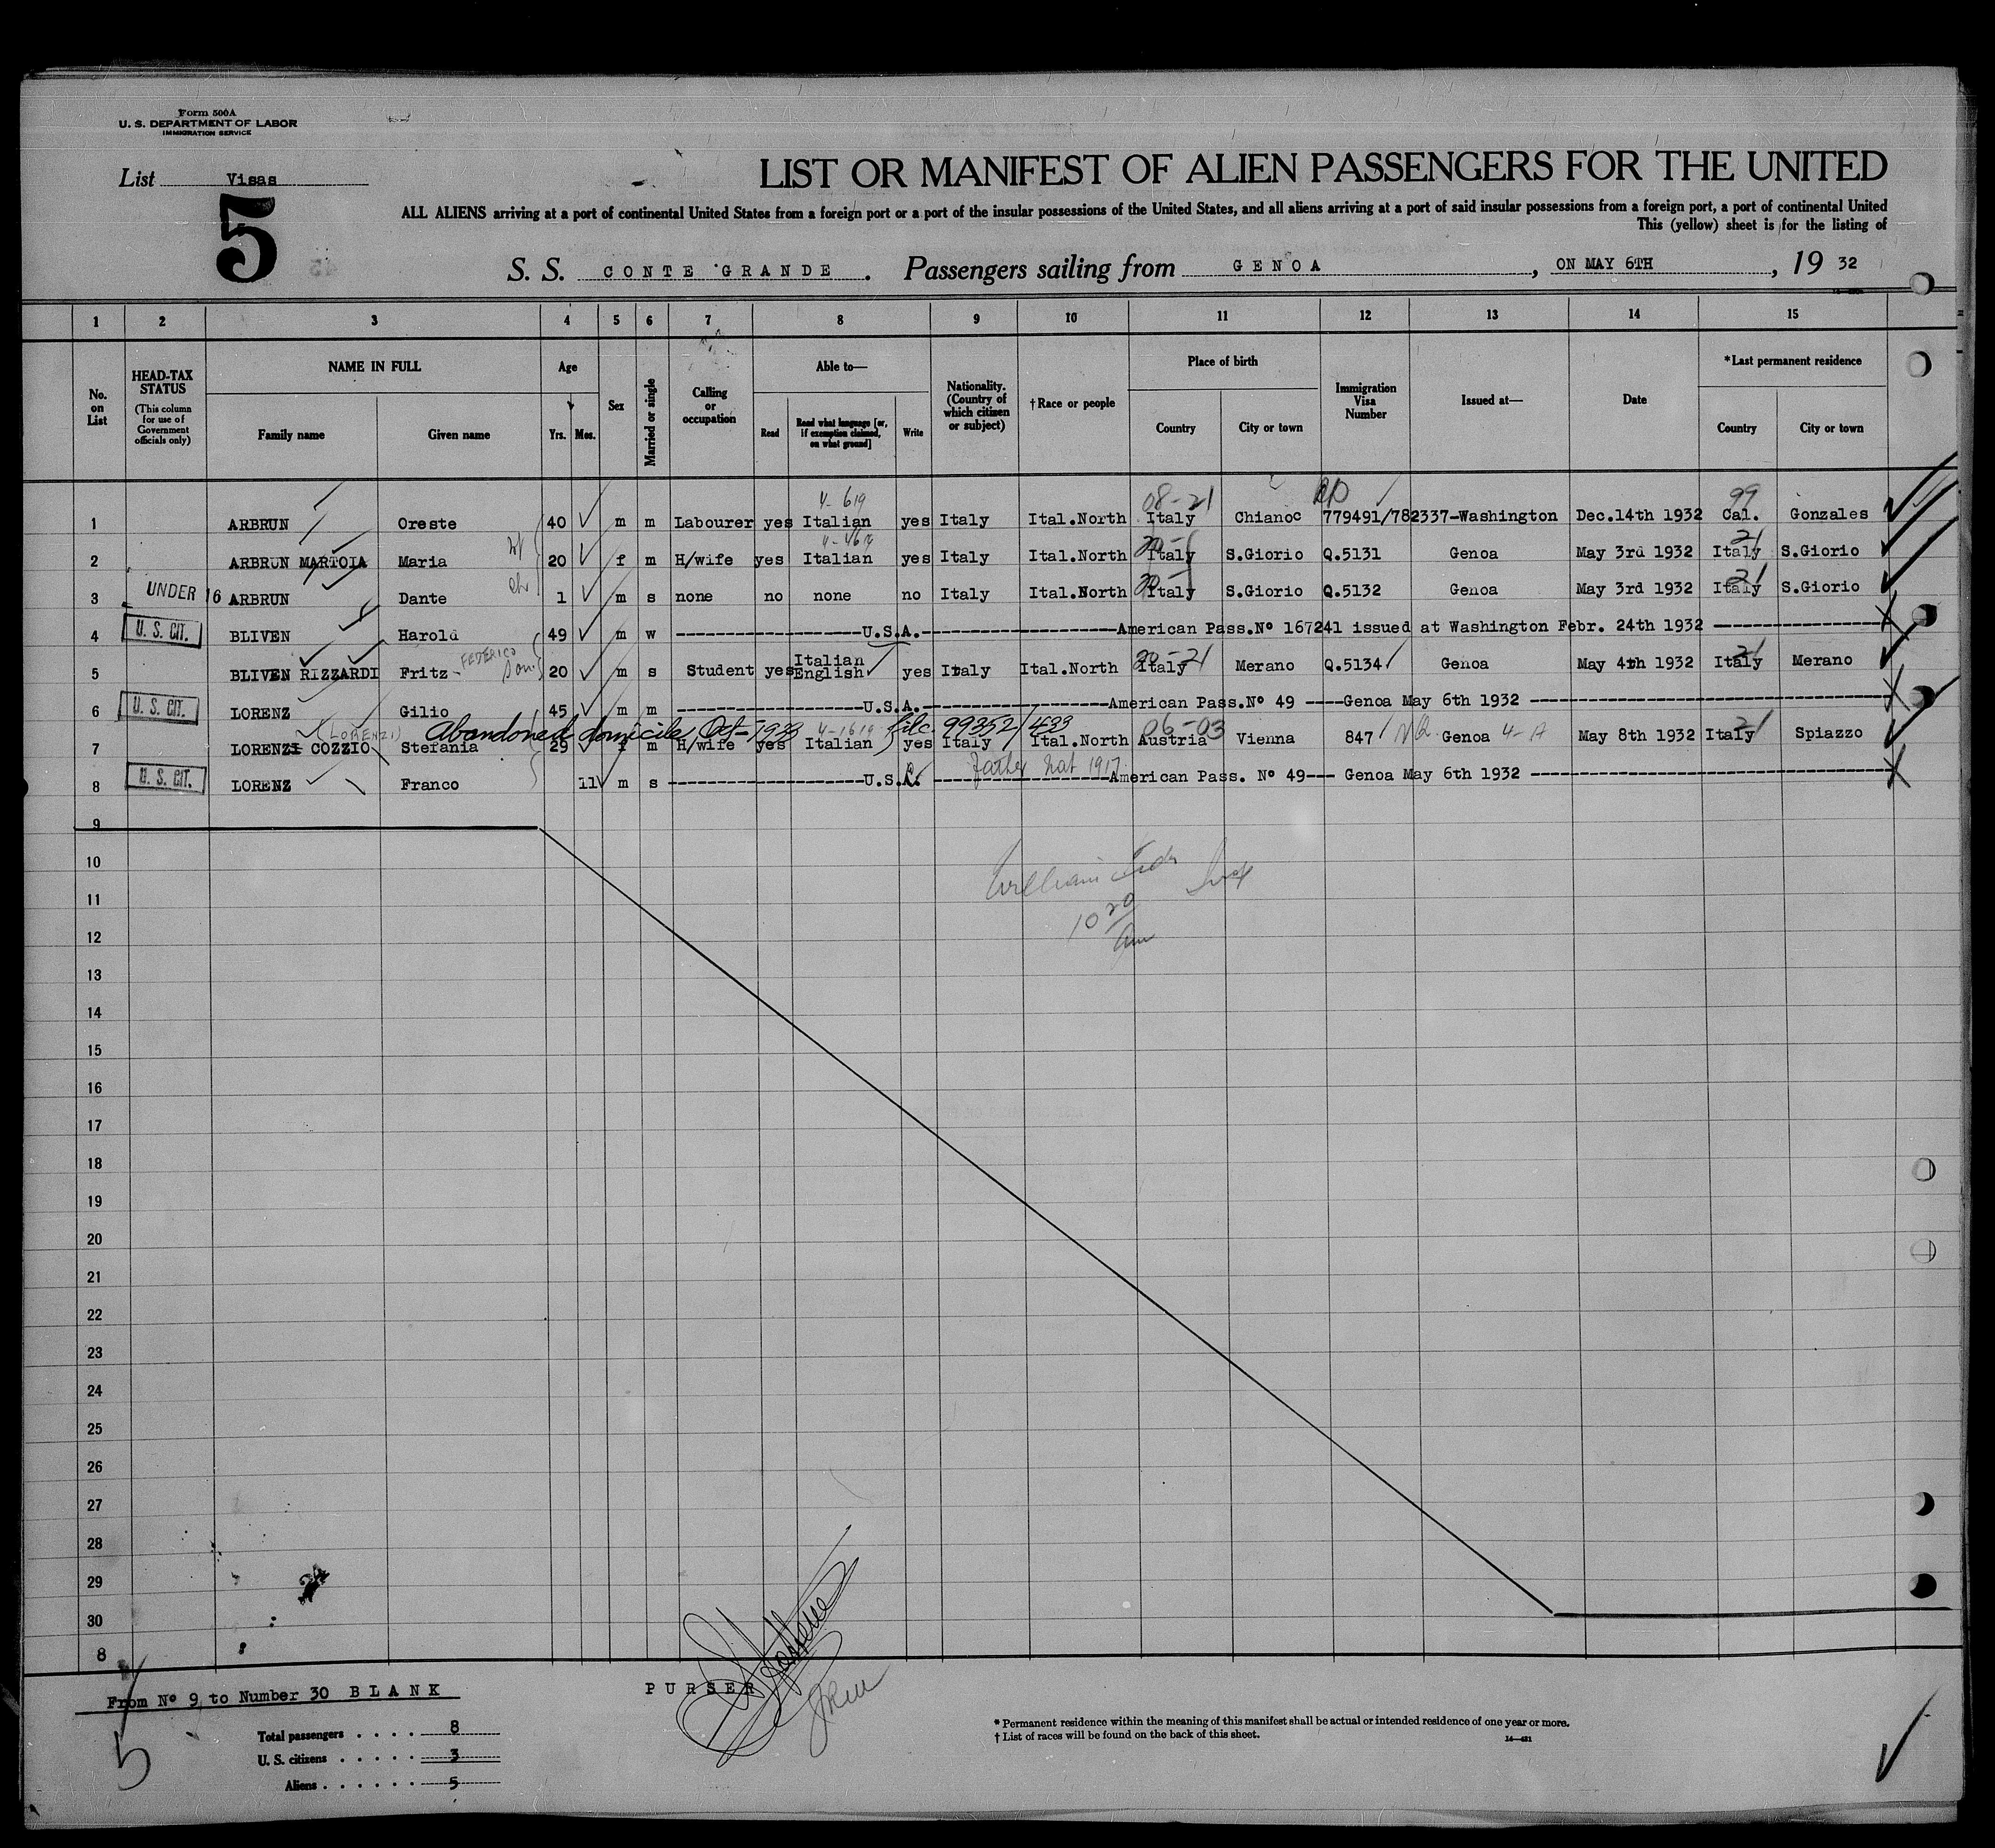 Form 500A
U. S. DEPARTMENT OF LABOR
IMMIGRATION SERVICE
List Visas
5
LIST OR MANIFEST OF ALIEN PASSENGERS FOR THE UNITED
ALL ALIENS arriving at a port of continental United States from a foreign port or a port of the insular possessions of the United States, and all aliens arriving at a port of said insular possessions from a foreign port, a port of continental United
This (yellow) sheet is for the listing of
S. S. CONTE GRANDE. Passengers sailing from GENOA, ON MAY 6TH, 19 32
1 2 3 4 5 6 7 8 9 10 11 12 13 14 15
No. on List
HEAD-TAX STATUS
(This column for use of Government officials only)
NAME IN FULL
Family name
Given name
Age
Yrs. Mos.
Sex
Married or single
Calling or occupation
Able to—
Read
Read what language [or, if exemption claimed, on what ground]
Write
Nationality. (Country of which citizen or subject)
† Race or people
Place of birth
Country
City or town
Immigration Visa Number
Issued at—
Date
*Last permanent residence
Country
City or town
4-619 08-21 99
1 ARBRUN Oreste 40 m m Labourer yes Italian yes Italy Ital.North Italy Chianoc 779491/782337-Washington Dec.14th 1932 Cal. Gonzales
21
2 ARBRUN MARTOIA Maria 20 f m H/wife yes Italian yes Italy Ital.North Italy S.Giorio Q.5131 Genoa May 3rd 1932 Italy S.Giorio
21
3 UNDER 16 ARBRUN Dante 1 m s none no none no Italy Ital.North Italy S.Giorio Q.5132 Genoa May 3rd 1932 Italy S.Giorio
4 U. S. CIT. BLIVEN Harold 49 m w ---U.S.A.---American Pass.Nº 167241 issued at Washington Febr. 24th 1932 ---
FEDERICO Son 21 21
5 BLIVEN RIZZARDI Fritz 20 m s Student yes Italian English yes Italy Ital.North Italy Merano Q.5134 Genoa May 4th 1932 Italy Merano
6 U. S. CIT. LORENZ Gilio 45 m m ---U.S.A.---American Pass.Nº 49 ----Genoa May 6th 1932 ---
(LORENZI) Abandoned domicile, Oct-1928 4-1619 file 99352/433 06-03 21
7 LORENZI COZZIO Stefania 29 f m H/wife yes Italian yes Italy Ital.North Austria Vienna 847 Genoa 4-A May 8th 1932 Italy Spiazzo
Father Nat 1917
8 U. S. CIT. LORENZ Franco 11 m s ---U.S.A. ---American Pass. Nº 49--- Genoa May 6th 1932 ---
9
10
William
11
10 20
12
am
13
14
15
16
17
18
19
20
21
22
23
24
25
26
27
28
29
30
8
From Nº 9 to Number 30 BLANK
PURSER
Total passengers . . . . 8
U. S. citizens . . . . . 3
Aliens . . . . . . 5
5
* Permanent residence within the meaning of this manifest shall be actual or intended residence of one year or more.
† List of races will be found on the back of this sheet.
14—421